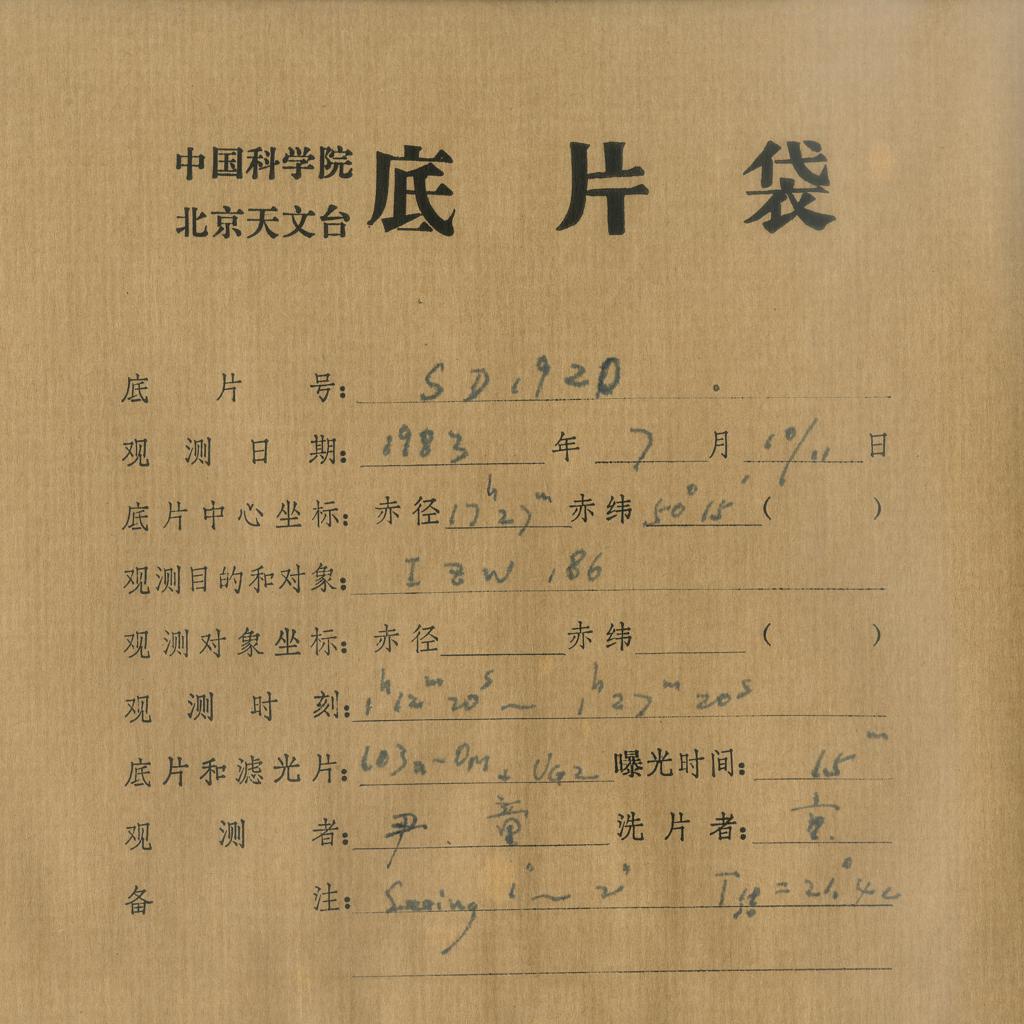 中国科学院
北京天文台
底片袋
底片号: SD1920
观测日期: 1983年7月10/11日
底片中心坐标: 赤径17ʰ27ᵐ赤纬50°15′( )
观测目的和对象: I Zw 186
观测对象坐标: 赤径 赤纬 ( )
观测时刻: 1ʰ12ᵐ20ˢ ~ 1ʰ27ᵐ20ˢ
底片和滤光片: 103a-OM + UG2 曝光时间: 15ᵐ
观测者: 尹. 童 洗片者:
备注: Seeing 1″ ~ 2″ = 21.°4c